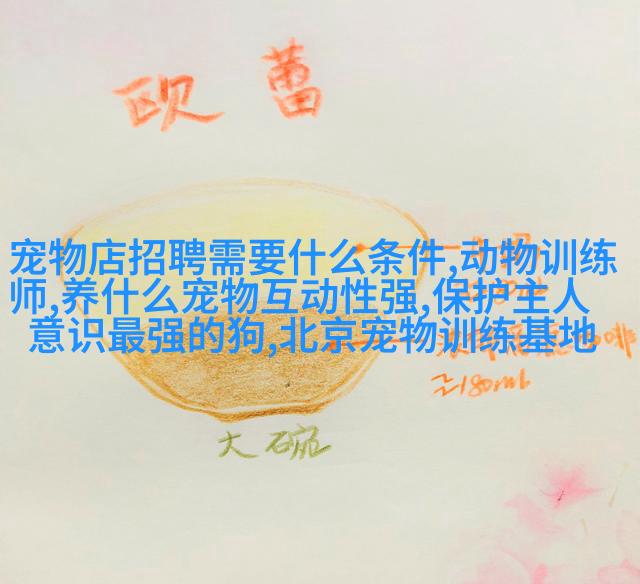 欧蕾
宠物店招聘需要什么条件,动物训练
师,养什么宠物互动性强,保护主人
意识最强的狗,北京宠物训练基地
啡
180ml
大碗